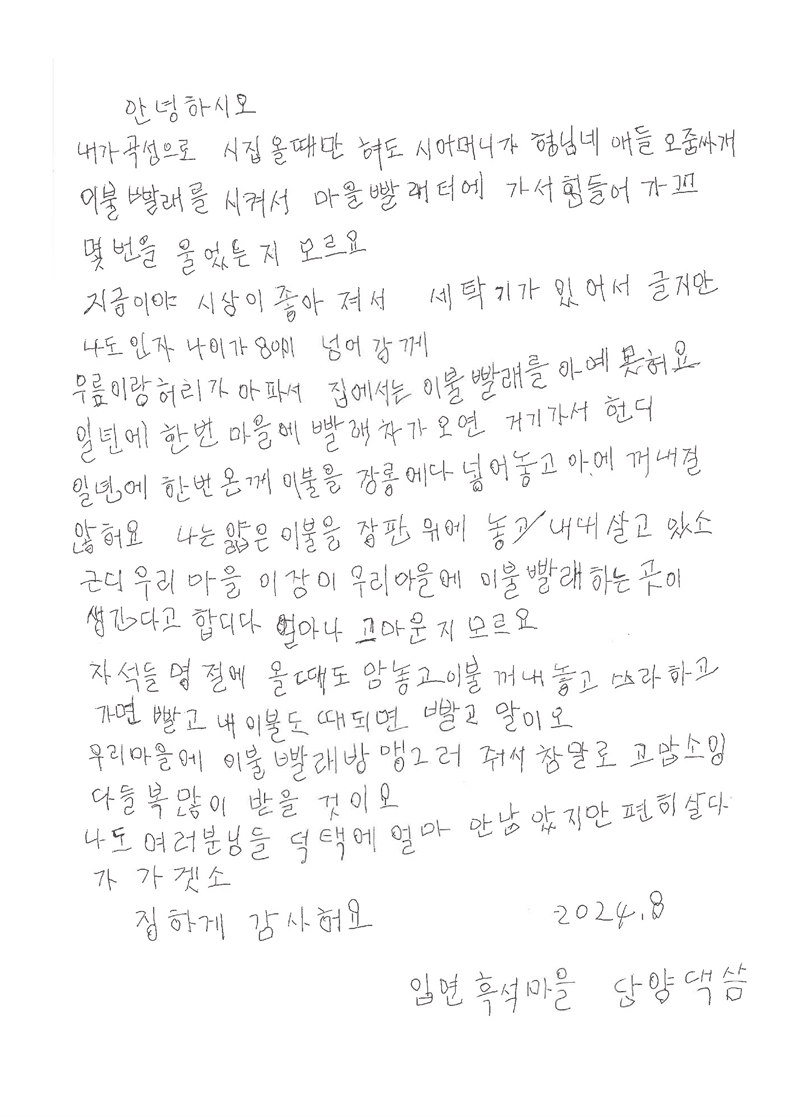 안녕하시오
내가 곡성으로 시집 올때만 혀도 시어머니가 형님네 애들 오줌싸개
이불 빨래를 시켜서 마을빨래터에 가서 힘들어 가꼬
몇번을 울었는지 모르요
지금이야 시상이 좋아 져서 세탁기가 있어서 글지만
나도 인자 나이가 80이 넘어감께
무릎이랑허리가 아파서 집에서는 이불빨래를 아예 못혀요
일년에 한번 마을에 빨래차가 오면 거기가서 헌디
일년에 한번온께 이불을 장롱에다 넣어놓고 아에 꺼내질
않혀요 나는 얇은 이불을 장판 위에 놓고 내내 살고 있소
근디 우리 마을 이장이 우리마을에 이불빨래하는 곳이
생긴다고 합디다 얼마나 고마운지 모르요
자석들 명절에 올때도 암놓고이불 꺼내놓고 쓰라하고
가면 빨고 내이불도 때되면 빨고 말이오
우리마을에 이불빨래방 맹그러 줘서 참말로 고맙소잉
다들복많이 받을 것이오
나도 여러분님들 덕택에 얼마 안남았지만 편히살다
가 가겟소
징하게 감사혀요 2024.8
입면흑석마을 단양댁씀